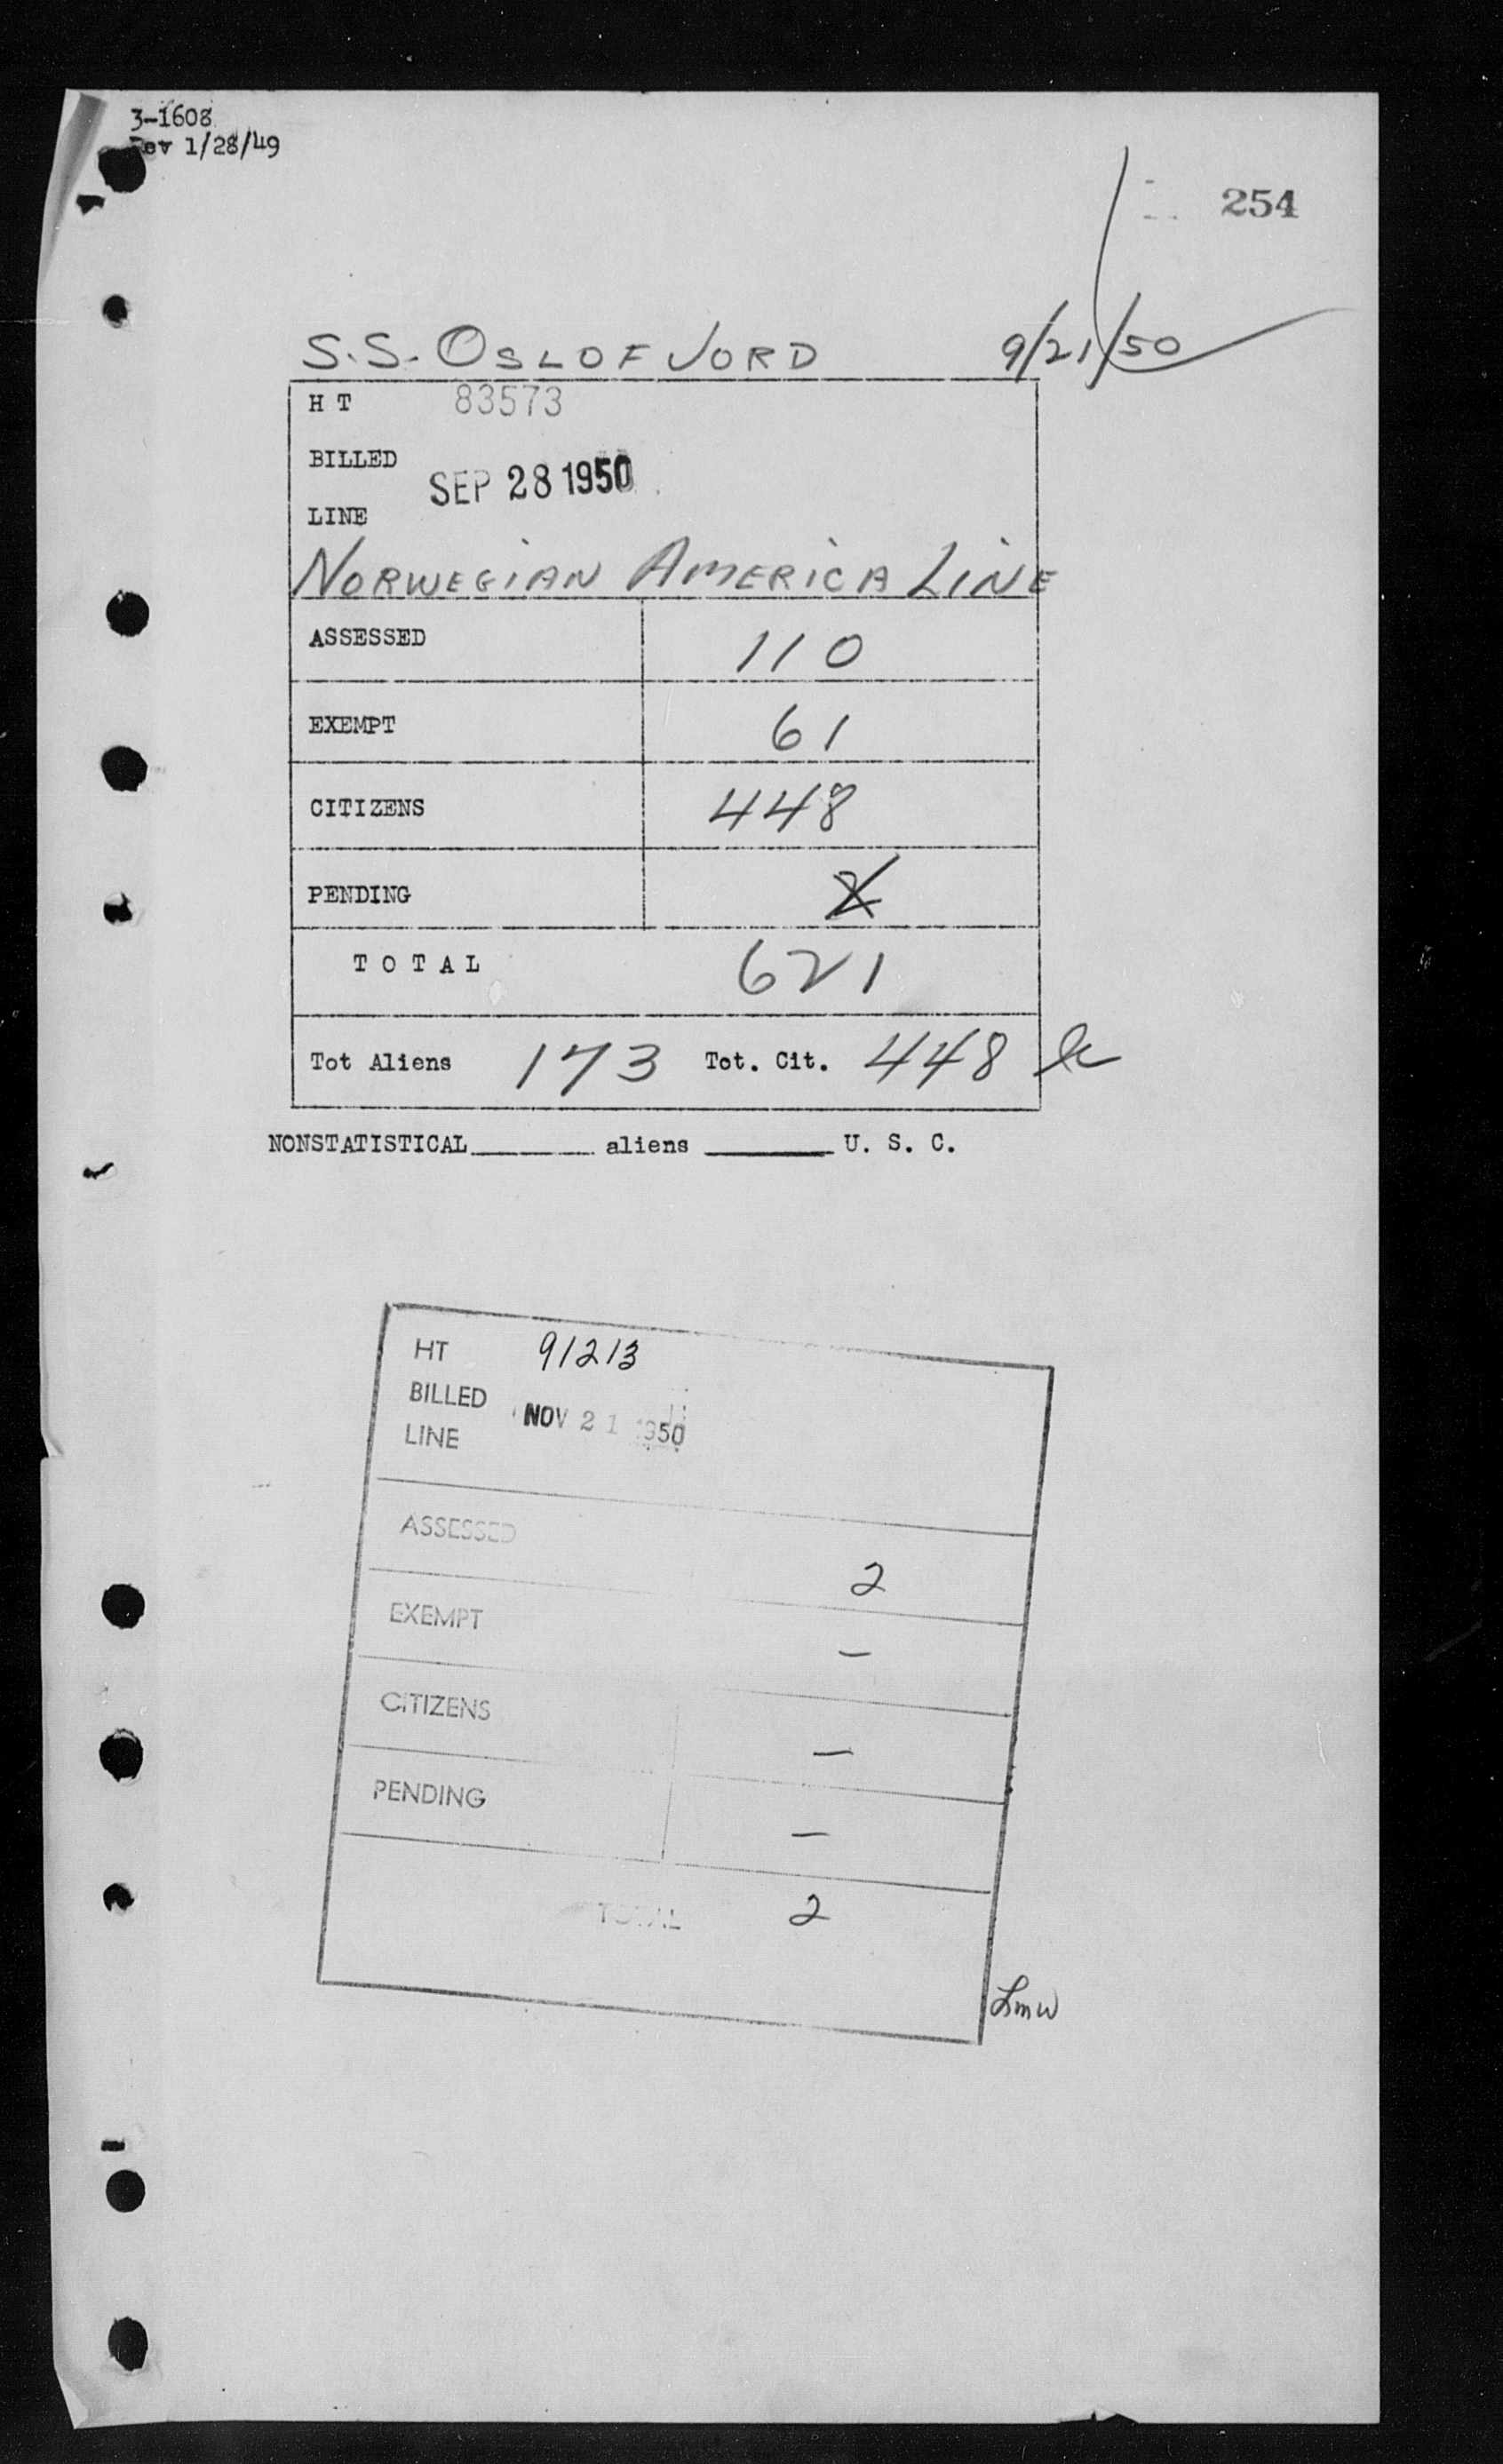 3-1608
Rev 1/28/49
254
S.S. OSLOFJORD 9/21/50
H T 83573
BILLED SEP 28 1950
LINE
NORWEGIAN AMERICA LINE
ASSESSED 110
EXEMPT 61
CITIZENS 448
PENDING 2
T O T A L 621
Tot Aliens 173 Tot. Cit. 448
NONSTATISTICAL aliens U. S. C.
HT 91213
BILLED NOV 21 1950
LINE
ASSESSED 2
EXEMPT –
CITIZENS –
PENDING –
TOTAL 2
Lmw